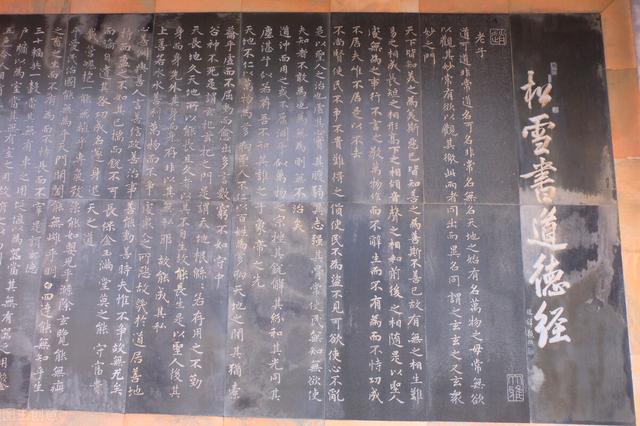 松雪書道德經
老子
道可道非常道名可名非常名無名天地之始有名萬物之母常無欲
以觀其妙常有欲以觀其徼此兩者同出而異名同謂之玄玄之又玄衆
妙之門
天下皆知美之為美斯惡已皆知善之為善斯不善已故有無之相生難
易之相成長短之相形高下之相傾音聲之相和前後之相隨是以聖人
處無為之事行不言之教萬物作而不辭生而不有為而不恃功成
不居夫惟不居是以不去
不尚賢使民不爭不貴難得之貨使民不為盜不見可欲使心不亂
是以聖人之治虛其心實其腹弱其志強其骨常使民無知無欲使
夫知者不敢為也為無為則無不治矣
道沖而用之或不盈淵乎似萬物之宗挫其銳解其紛和其光同其
塵湛乎似若存吾不知其誰之子象帝之先
天地不仁以萬物為芻狗聖人不仁以百姓為芻狗天地之間其猶橐
籥乎虛而不屈動而愈出多言數窮不如守中
谷神不死是謂玄牝玄牝之門是謂天地根綿綿若存用之不勤
天長地久天地所以能長且久者以其不自生故能長生是以聖人後其
身而身先外其身而身存非以其無私邪故能成其私
上善若水水善利萬物而不爭處衆人之所惡故幾於道居善地
心善淵與善人言善信政善治事善能動善時夫惟不爭故無尤矣
持而盈之不如其已揣而銳之不可長保金玉滿堂莫之能守富貴
而驕自遺其咎功成名遂身退天之道
載營魄抱一能無離乎專氣致柔能如嬰兒乎滌除玄覽能無疵
乎愛民治國能無為乎天門開闔能無雌乎明白四達能無知乎生
之畜之生而不有為而不恃長而不宰是謂玄德
三十輻共一轂當其無有車之用埏埴以為器當其無有器之用鑿
戶牖以為室當其無有室之用